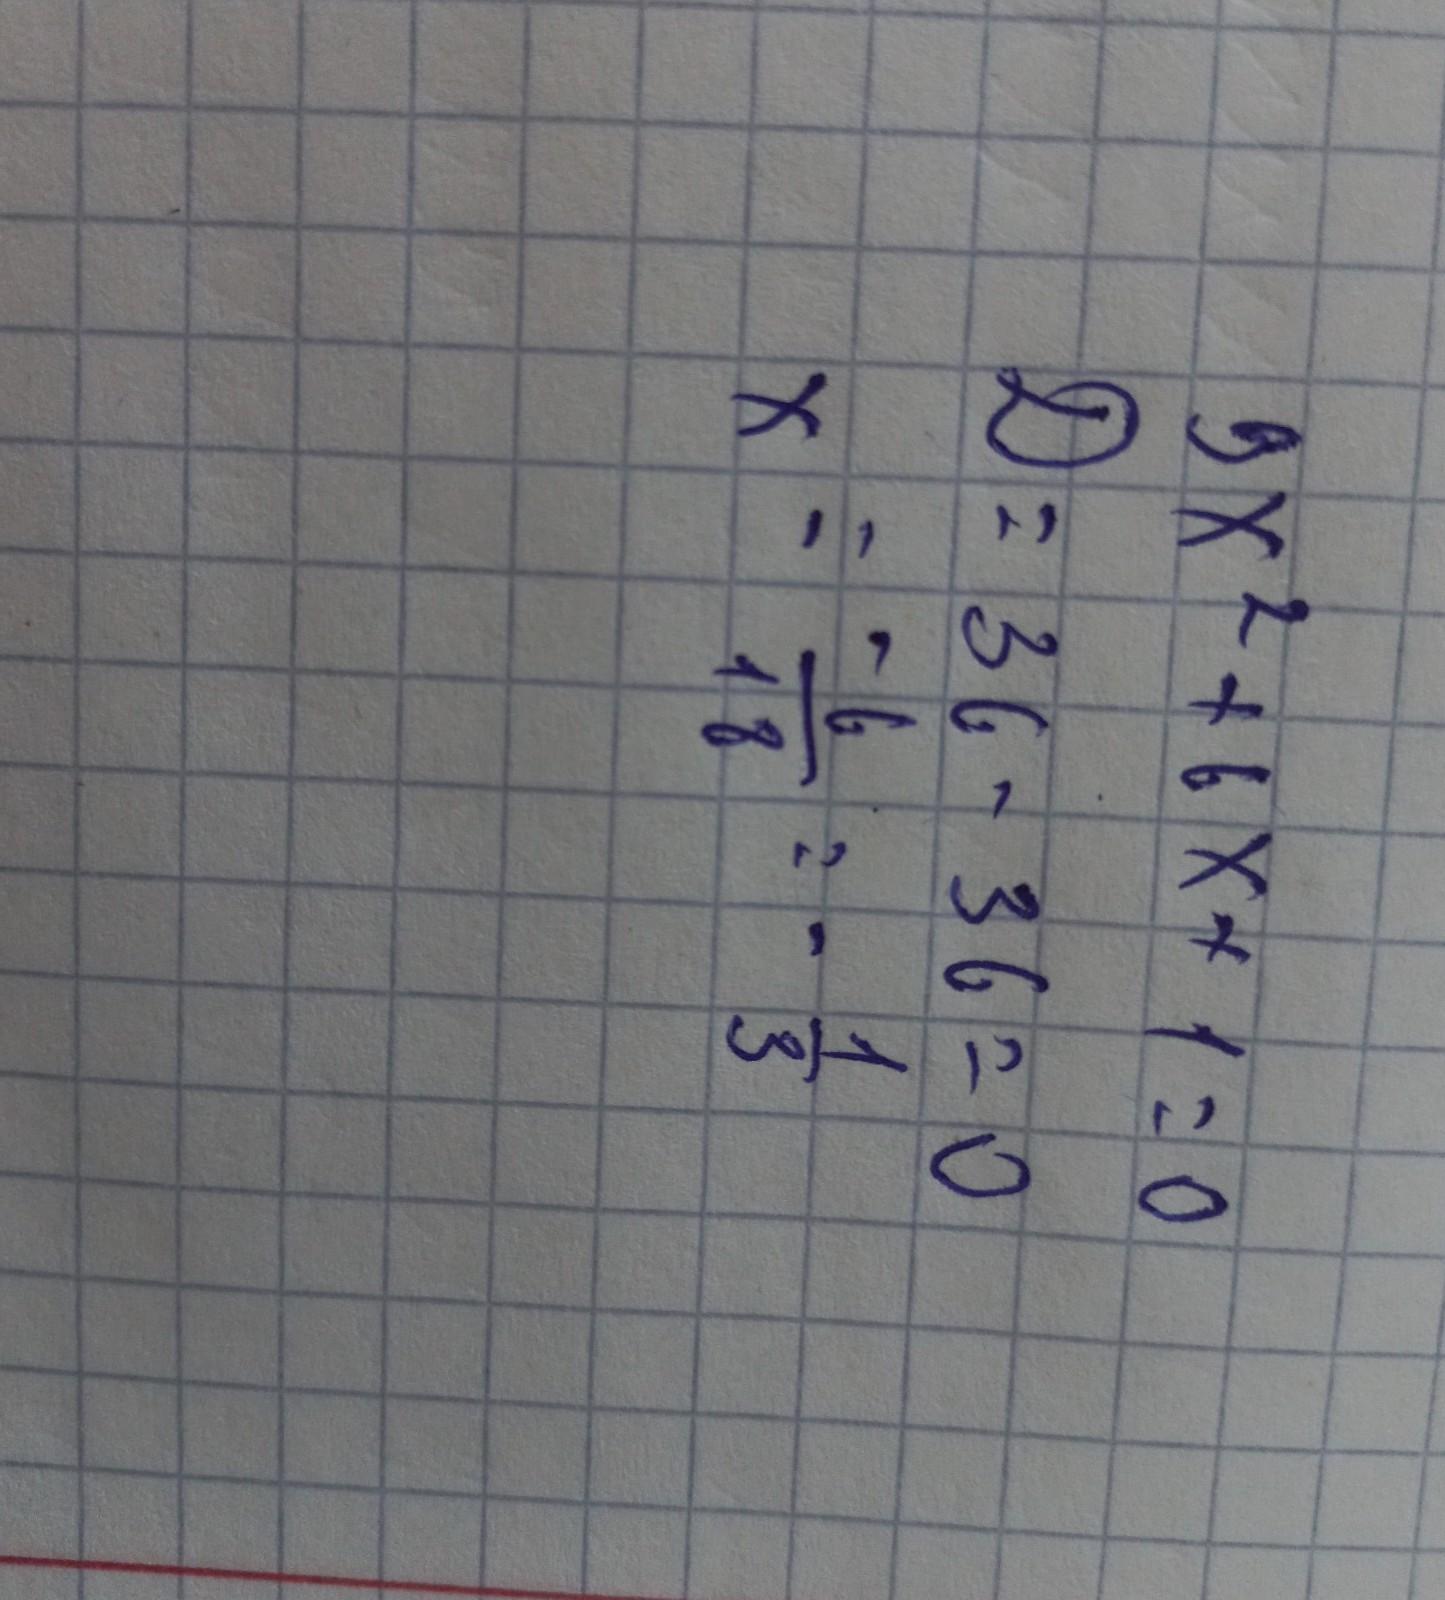 9x² + 6x + 1 = 0
D = 36 - 36 = 0
x = -6/18 = -1/3